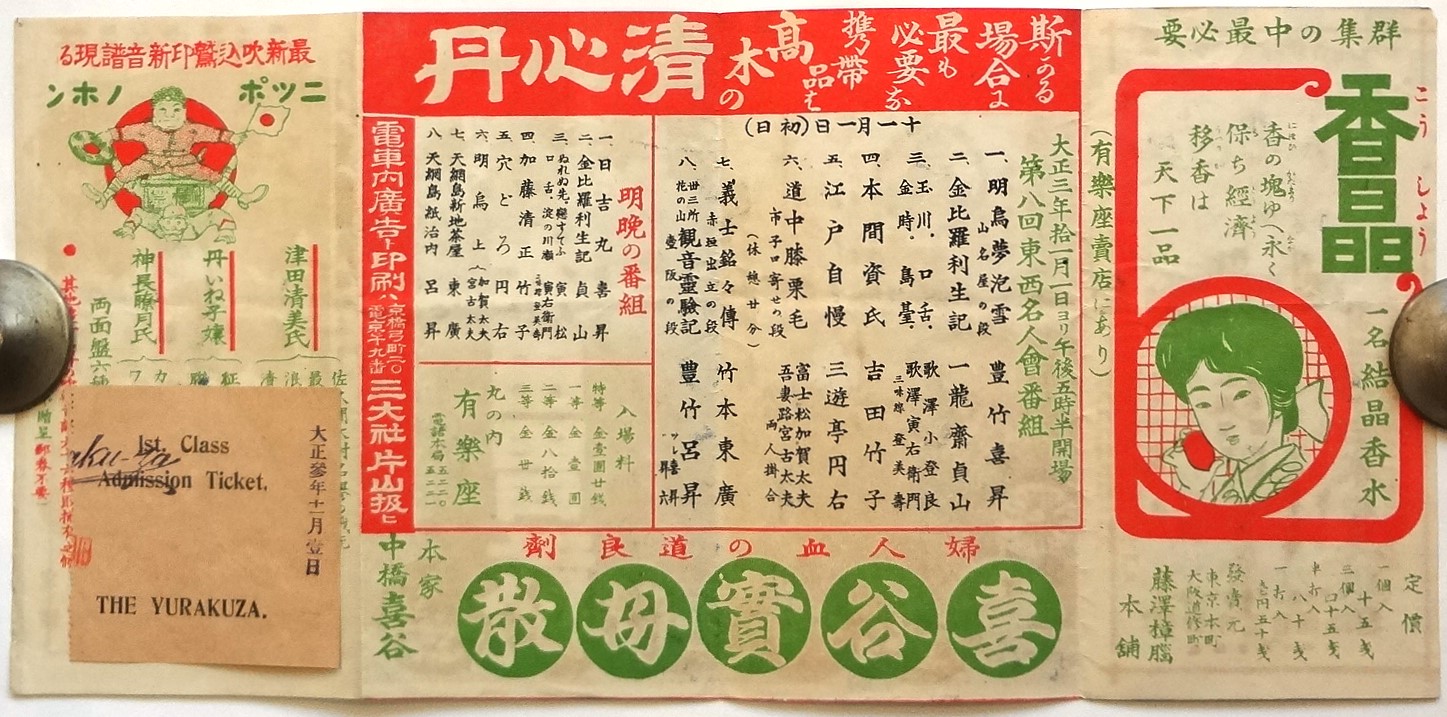 群集の中最必要
香晶
こうしょう
香の塊ゆへ永く
保ち經濟
移香は
天下一品
一名結晶香水
定價
一個入 十五戔
三個入 四十五戔
半打入 八十戔
一打入 壱円五十戔
發賣元
東京本町
大阪道修町
藤澤樟腦
本舗
(有樂座賣店にあり)
斯かる
場合に
最も
必要な
携帶
高品は
木の
清心丹
大正三年拾一月一日ヨリ午後五時半開場
第八回東西名人會番組
十一月一日(初日)
一、明烏夢泡雪 山名屋の段 豊竹喜昇
二、金比羅利生記 一龍齋貞山
三、玉川、口舌、金時、島臺、 歌澤小登良 歌澤寅右衛門 三味線 登美壽
四、本間資氏 吉田竹子
五、江戸自慢 三遊亭円右
六、道中膝栗毛 市子口寄せの段 富士松加賀太夫 吾妻路宮古太夫 両人掛合
(休憩廿分)
七、義士銘々傳 赤垣出立の段 竹本東廣
八、卅三所花の山 観音靈驗記 壷阪の段 豊竹呂昇 ツレ 喜昇 昇六
明晩の番組
一、日吉丸 喜昇
二、金比羅利生記 貞山
三、ぬれぬ先、戀すてふ 口舌、淀の川瀬 寅松 寅右衛門
四、加藤清正 竹子
五、穴どろ 円右
六、明烏上 加賀太夫 宮古太夫
七、天網島新地茶屋 東廣
八、天網島紙治内 呂昇
入場料
特等 金壹圓廿銭
一等 金壹圓
二等 金八拾銭
三等 金卅銭
丸の内
有樂座
電話本局 五二二〇 五二二一
電車内廣告ト印刷ハ 京橋弓町二〇 電京一九番 三大社片山扱ヒ
婦人血の道良劑
喜谷實母散
本家
中橋喜谷
最新吹込鷲印新音譜現る
ニッポンノホン
津田清美氏
丹いね子嬢
神長瞭月氏
両面盤六種
贈呈郵券不要
大正參年十一月壹日
1st. Class
Admission Ticket.
THE YURAKUZA.